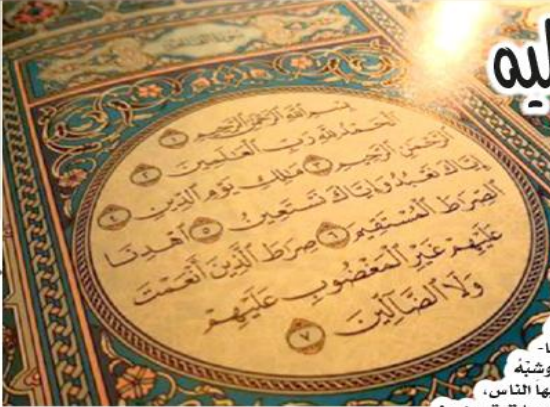 بِسْمِ ٱللَّهِ ٱلرَّحْمَٰنِ ٱلرَّحِيمِ ١
ٱلْحَمْدُ لِلَّهِ رَبِّ ٱلْعَٰلَمِينَ ٢
ٱلرَّحْمَٰنِ ٱلرَّحِيمِ ٣ مَٰلِكِ يَوْمِ ٱلدِّينِ ٤
إِيَّاكَ نَعْبُدُ وَإِيَّاكَ نَسْتَعِينُ ٥ ٱهْدِنَا
ٱلصِّرَٰطَ ٱلْمُسْتَقِيمَ ٦ صِرَٰطَ ٱلَّذِينَ أَنْعَمْتَ
عَلَيْهِمْ غَيْرِ ٱلْمَغْضُوبِ عَلَيْهِمْ
وَلَا ٱلضَّآلِّينَ ٧
وشبّهُ
الناس،